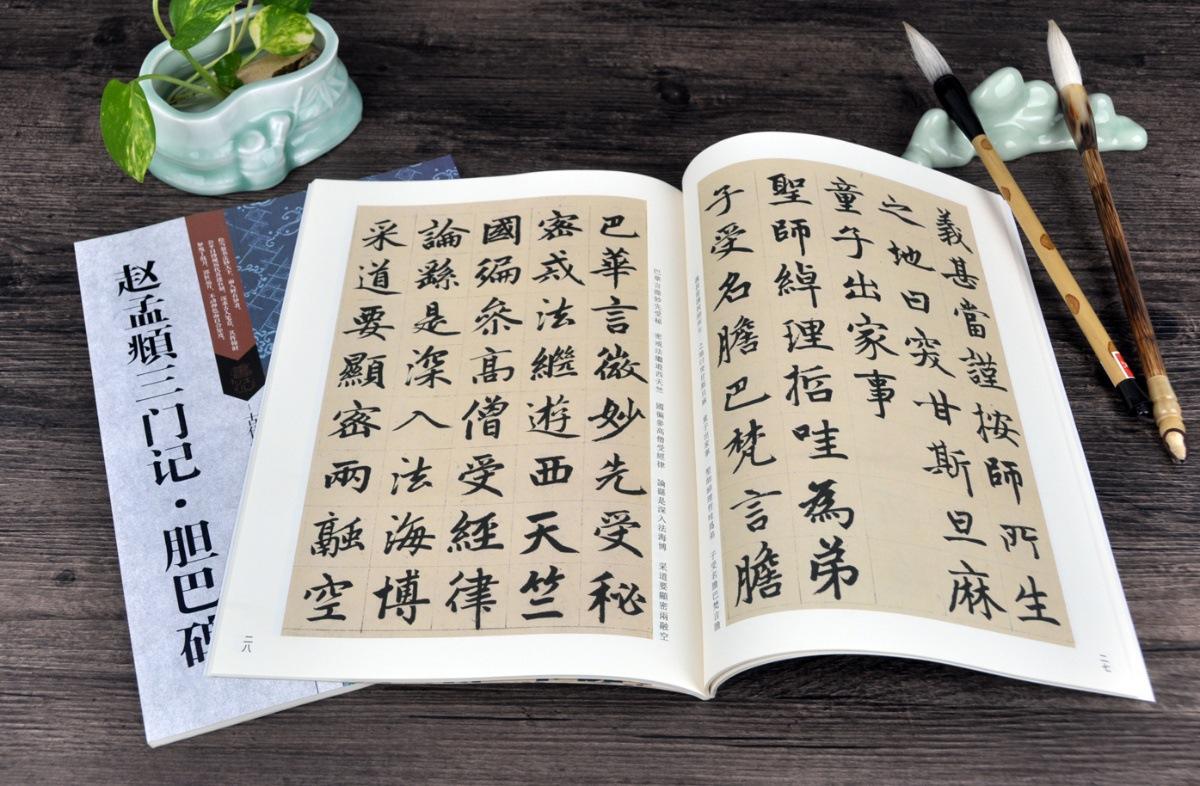 義甚當謹按師所生
之地曰突甘斯旦麻
童子出家事
聖師綽理哲哇為弟
子受名膽巴梵言膽
二七
巴華言微妙先受秘
密戒法繼遊西天竺
國徧叅高僧受經律
論繇是深入法海博
采道要顯密兩融空
巴華言微妙先受秘 密戒法繼遊西天竺 國徧參高僧受經律 論繇是深入法海博 采道要顯密兩融空
二八
赵孟頫三门记·胆巴碑